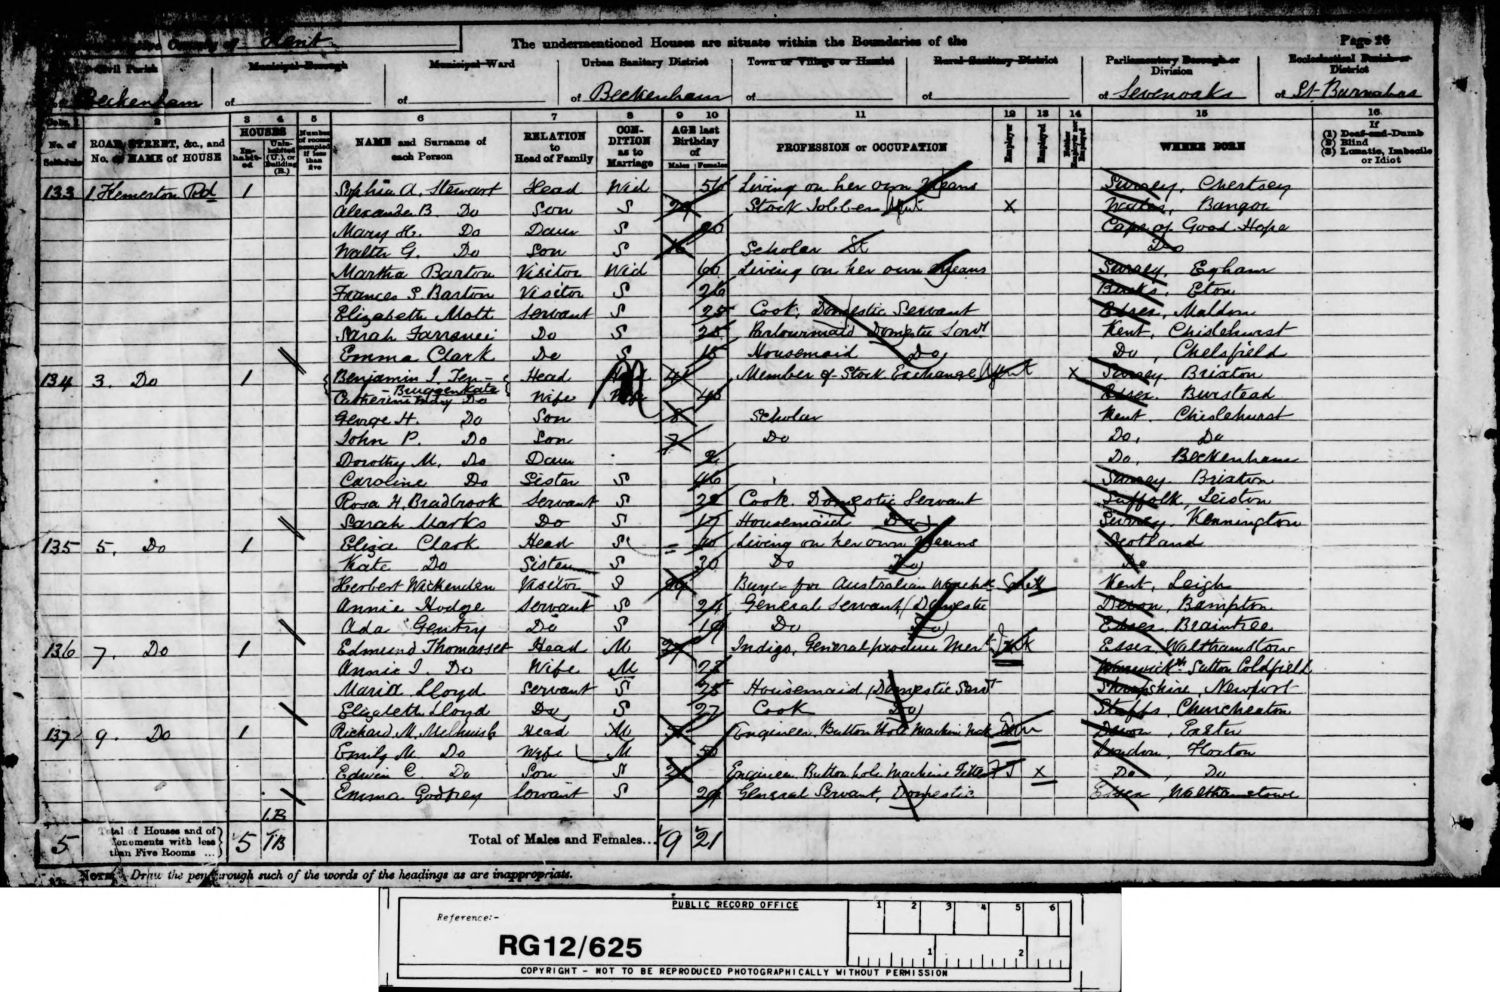 Administrative County of Kent
The undermentioned Houses are situate within the Boundaries of the
Page 26
Civil Parish
Municipal Borough
Municipal Ward
Urban Sanitary District
Town or Village or Hamlet
Rural Sanitary District
Parliamentary Borough or Division
Ecclesiastical Parish or District
of Beckenham of of of Beckenham of of of Sevenoaks of St Barnabas
Cols. 1 2 3 4 5 6 7 8 9 10 11 12 13 14 15 16
No. of Schedule
ROAD, STREET, &c., and No. or NAME of HOUSE
HOUSES
Inhabited
Uninhabited (U.), or Building (B.)
Number of rooms occupied if less than five
NAME and Surname of each Person
RELATION to Head of Family
CONDITION as to Marriage
AGE last Birthday of
Males Females
PROFESSION or OCCUPATION
Employer
Employed
Neither Employer nor Employed
WHERE BORN
If (1) Deaf-and-Dumb (2) Blind (3) Lunatic, Imbecile or Idiot
133 1 Hemerton Rd 1 Sophia A. Stewart Head Wid Living on her own Means Surrey, Chertsey
Alexander B. Do Son S 29 Stock Jobber X Wales, Bangor
Mary H. Do Daur S 20 Cape of Good Hope
Walter G. Do Son S 16 Scholar Do
Martha Barton Visitor Wid 60 Living on her own Means Surrey, Egham
Frances S. Barton Visitor S 26 Berks, Eton
Elizabeth Mott Servant S 25 Cook, Domestic Servant Essex, Maldon
Sarah Do S 25 Parlourmaid Domestic Servt Kent, Chislehurst
Emma Clark Do S 18 Housemaid Do Do, Chelsfield
134 3. Do 1 Benjamin I. Ten-Bruggenkate Head Member of Stock Exchange X Surrey Brixton
Catherine Do Wife 40 Essex. Burstead
George H. Do Son 8 Scholar Kent Chislehurst
John P. Do Son 7 Do Do, Do
Dorothy M. Do Daur 2 Do, Beckenham
Caroline Do Sister S 46 Surrey Brixton
Rosa H. Bradbrook Servant S 22 Cook Domestic Servant Suffolk, Leiston
Sarah Marks Do S 17 Housemaid Do Surrey, Kennington
135 5. Do 1 Eliza Clark Head S 40 Living on her own Means Scotland
Kate Do Sister S 30 Do Do
Herbert Wickenden Visitor S Buyer for Australian Kent, Leigh
Annie Hodge Servant S 24 General Servant, Domestic Devon, Bampton
Ada Gentry Do S 19 Do Do Essex, Braintree
136 7. Do 1 Edmund Thomasset Head M 29 Indigo, General produce Mert X Essex, Walthamstow
Annie I. Do Wife M 28 Warwicksh Sutton Coldfield
Maria Lloyd Servant S 25 Housemaid, Domestic Servt Shropshire, Newport
Elizabeth Lloyd Do S 27 Cook Do Staffs, Churcheaton
137 9. Do 1 Richard N. Melhuish Head M Engineer, Button Hole Machine Devon, Exeter
Emily M. Do Wife M 50 London, Hoxton
Edwin C. Do Son S 21 Engineer Button hole Machine Fitter X Do, Do
Emma Godfrey Servant S General Servant, Domestic Essex, Walthamstowe
1B
5 Total of Houses and of Tenements with less than Five Rooms ... 5 1B Total of Males and Females... 9 21
NOTE.—Draw the pen through such of the words of the headings as are inappropriate.
PUBLIC RECORD OFFICE
Reference:-
RG12/625
1 2 3 4 5 6
1 2
COPYRIGHT - NOT TO BE REPRODUCED PHOTOGRAPHICALLY WITHOUT PERMISSION